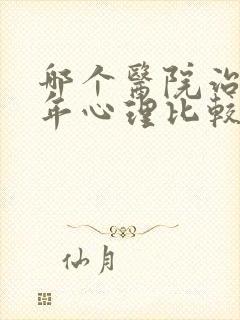 哪个醫院治
年心理比較
仙月